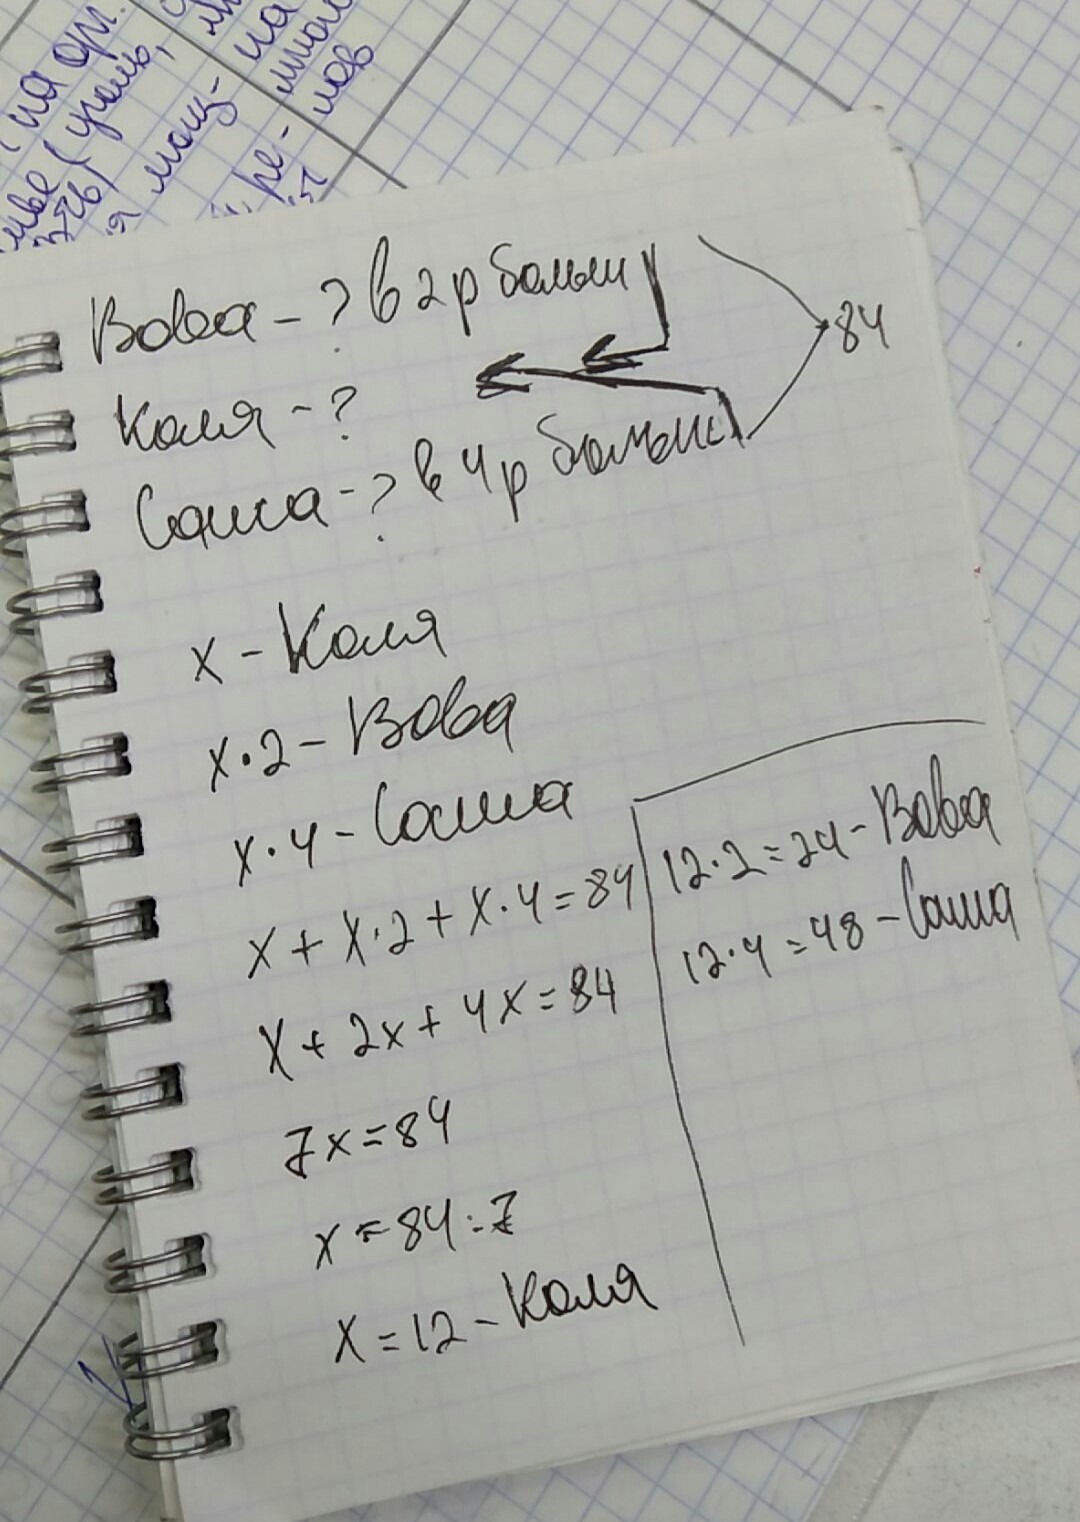 на
Вова - ? в 2 р больш
84
Коля - ?
Саша - ? в 4 р больш
x - Коля
x·2 - Вова
x·4 - Саша
x + x·2 + x·4 = 84
x + 2x + 4x = 84
7x = 84
x = 84:7
x = 12 - Коля
12·2 = 24 - Вова
12·4 = 48 - Саша